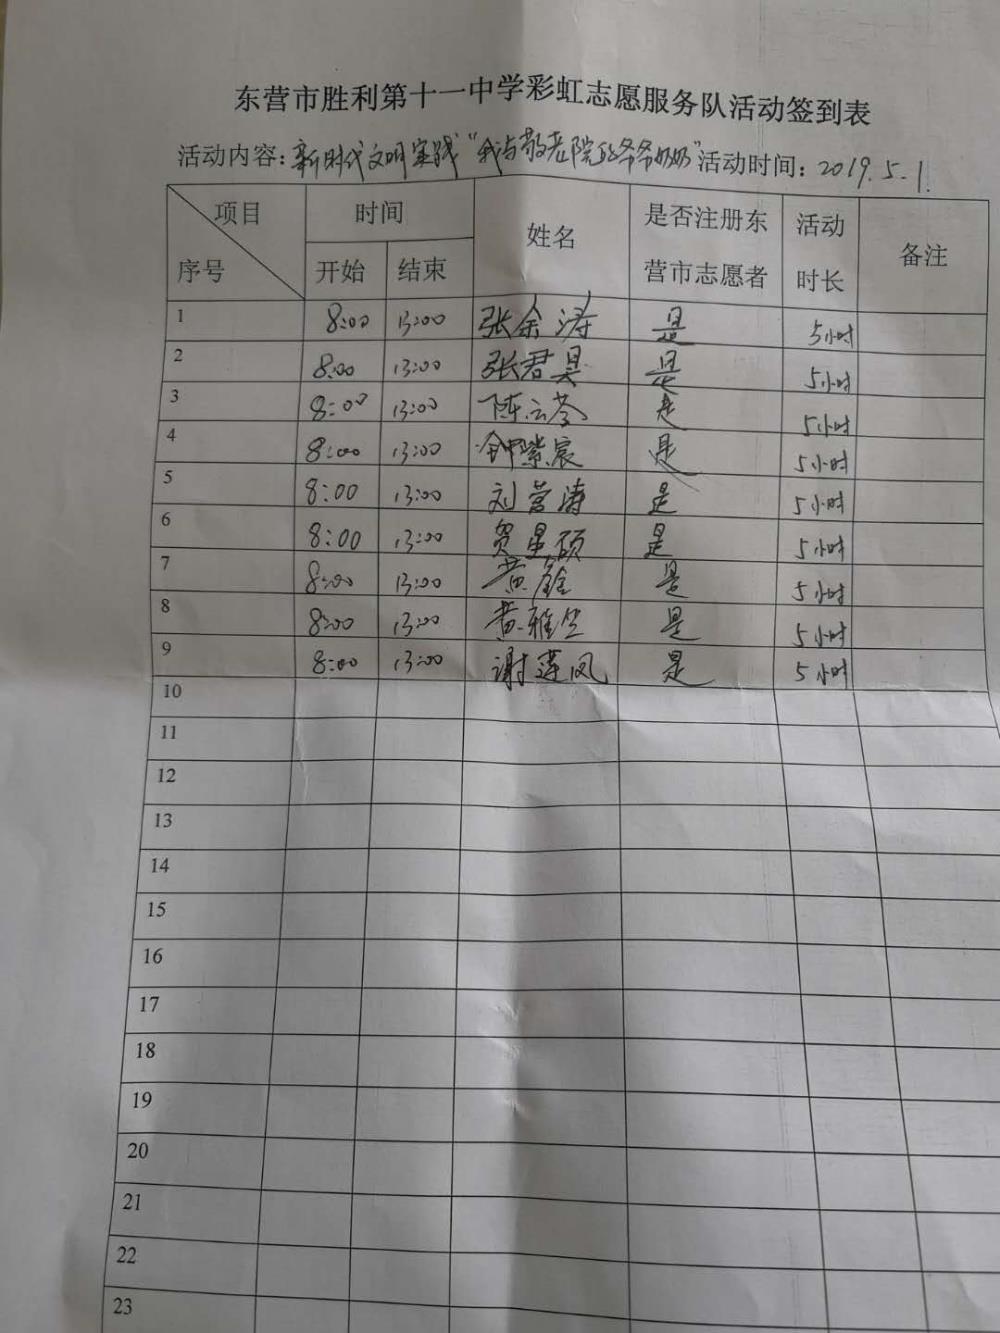 东营市胜利第十一中学彩虹志愿服务队活动签到表
活动内容：新时代文明实践“我与敬老院的爷爷奶奶”活动时间：2019.5.1.
项目 时间 姓名 是否注册东营市志愿者 活动时长 备注
序号 开始 结束
1 8:00 13:00 张余涛 是 5小时
2 8:00 13:00 张君昊 是 5小时
3 8:00 13:00 陈云苓 是 5小时
4 8:00 13:00 钟紫宸 是 5小时
5 8:00 13:00 刘营涛 是 5小时
6 8:00 13:00 贺星硕 是 5小时
7 8:00 13:00 黄 是 5小时
8 8:00 13:00 黄雅 是 5小时
9 8:00 13:00 谢莲凤 是 5小时
10
11
12
13
14
15
16
17
18
19
20
21
22
23